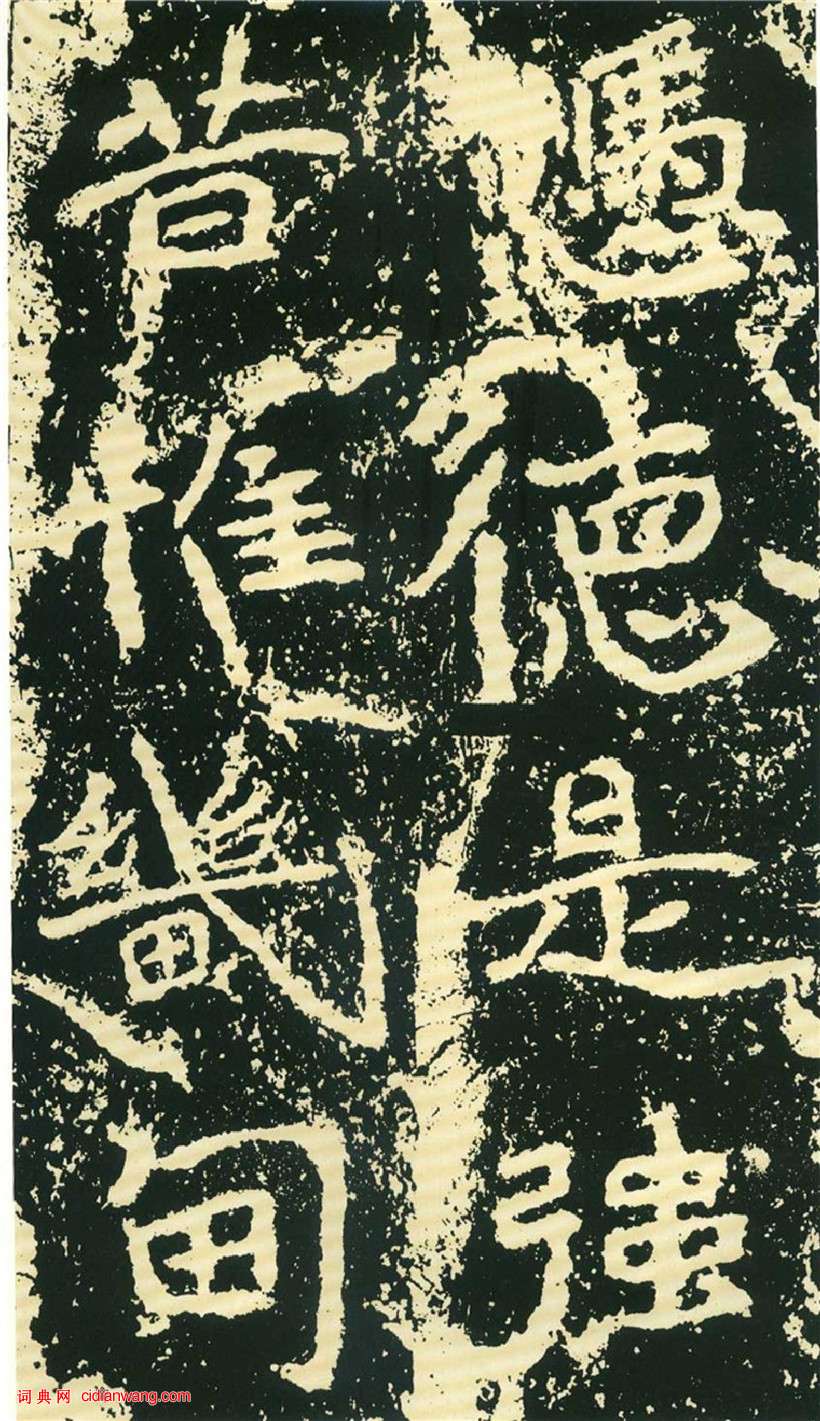 憑德是強
昔惟畿甸
词典网 cidianwang.com